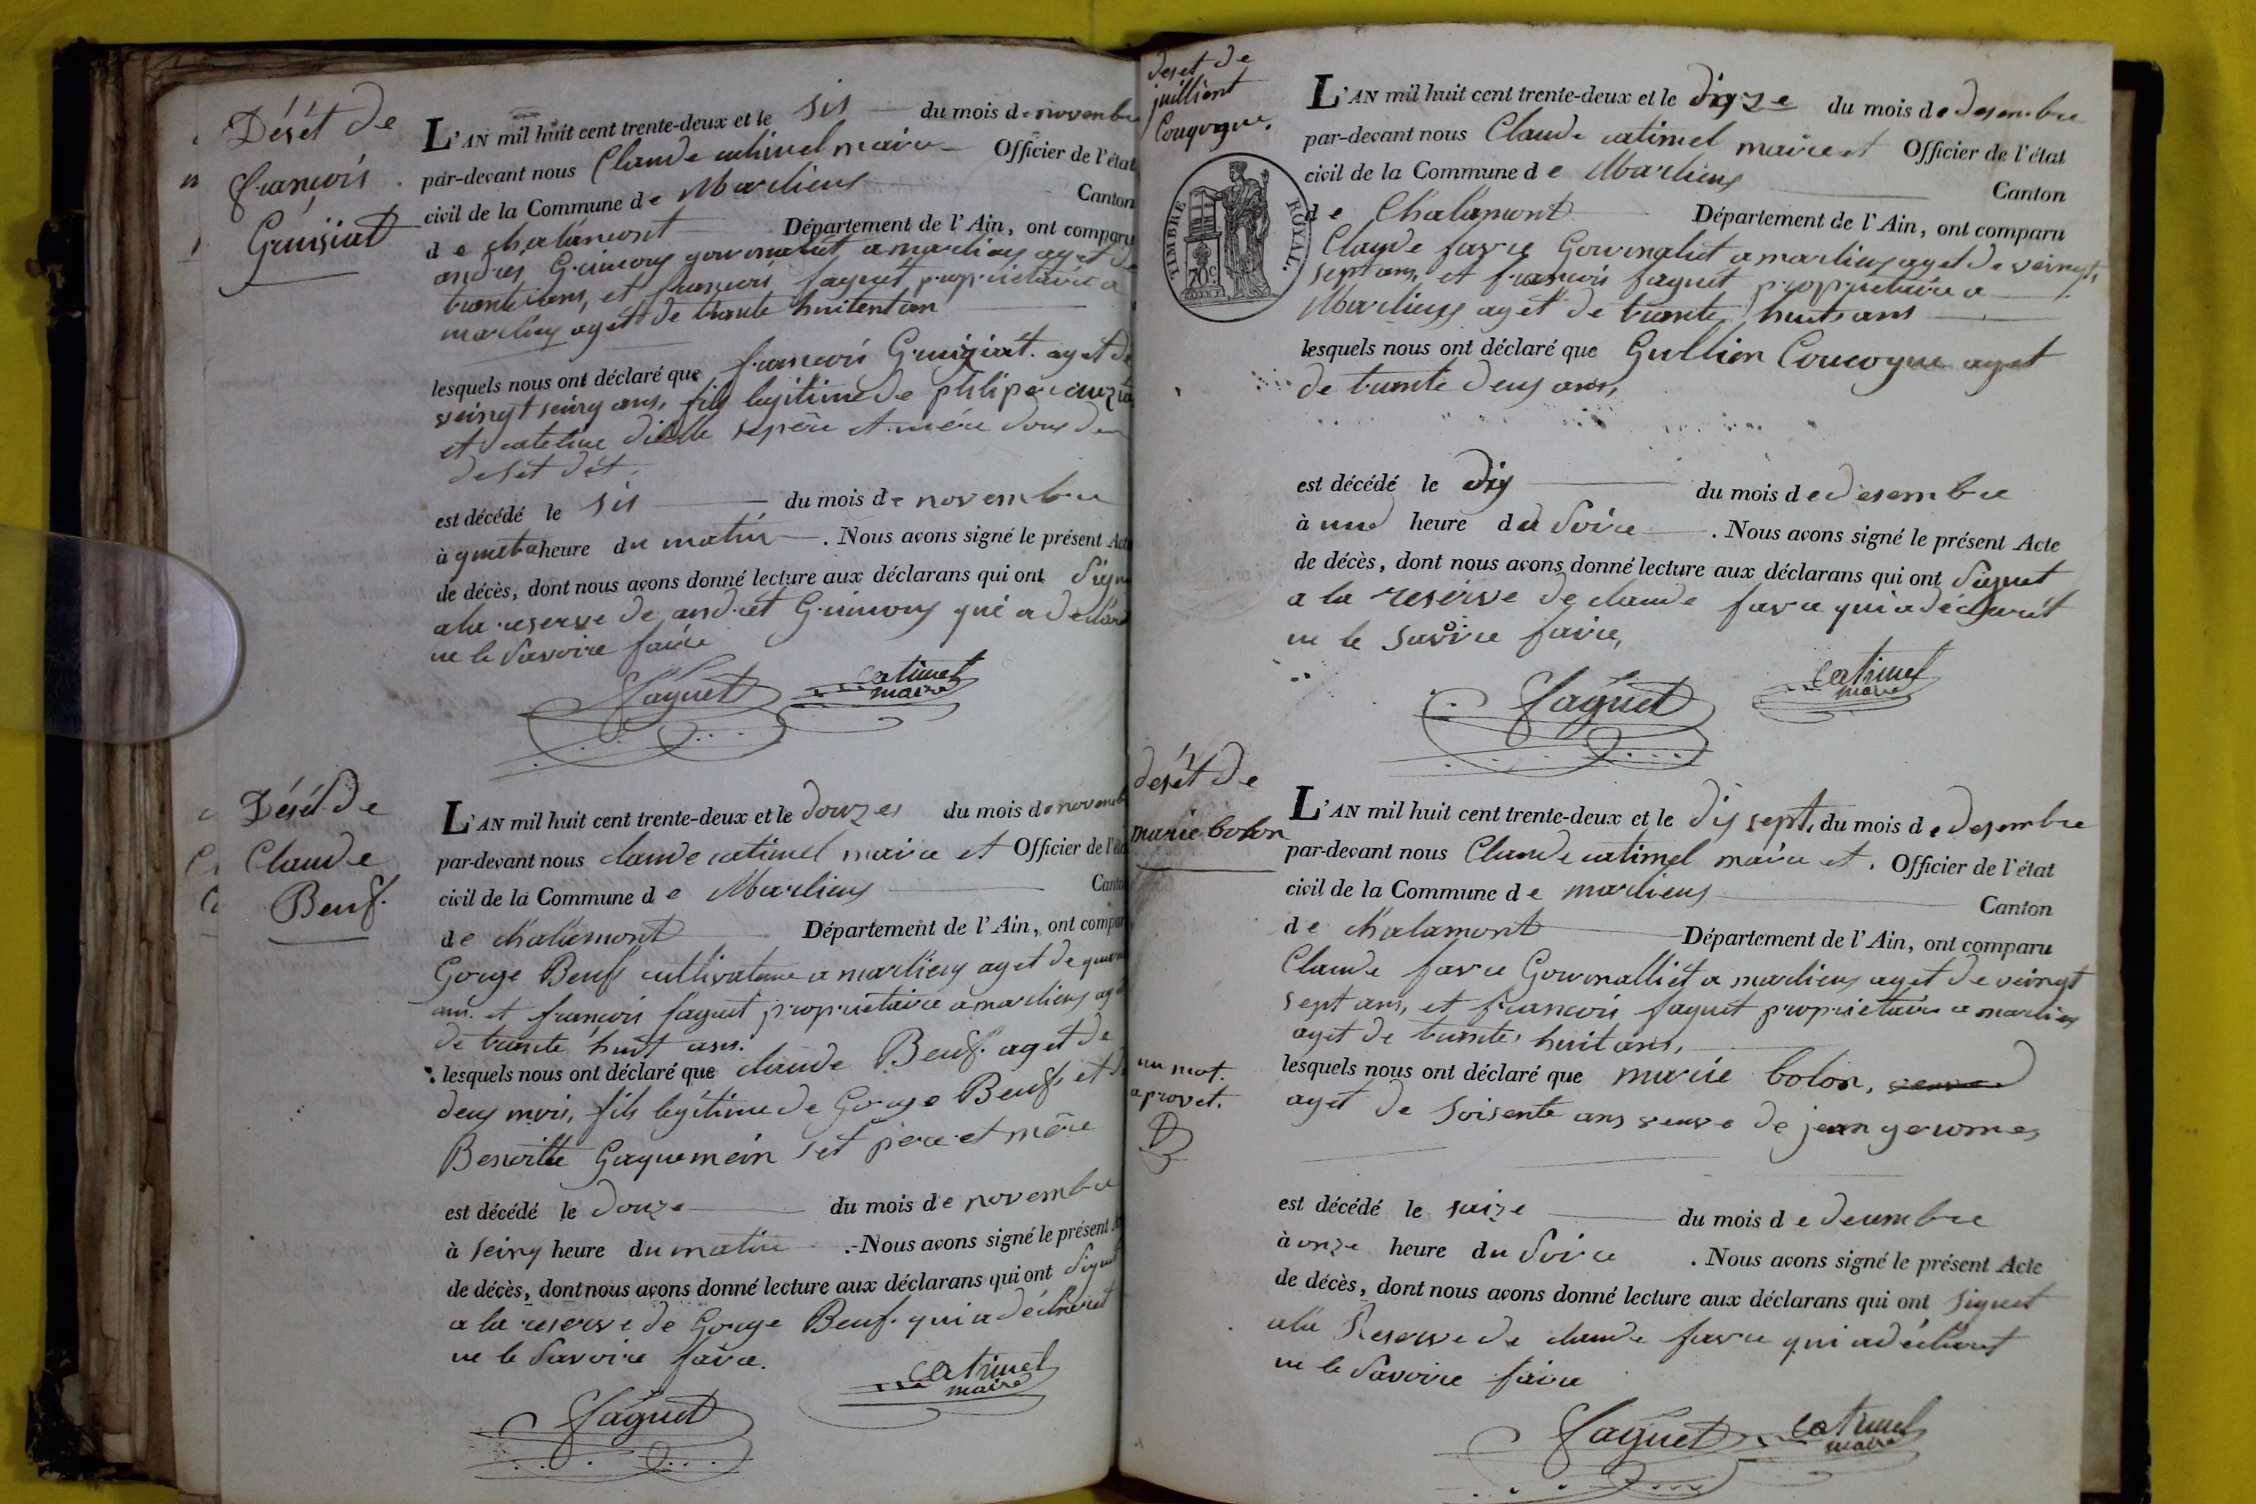 Dését de
françois
Gruisiat
L'AN mil huit cent trente-deux et le sis du mois de novembre
par-devant nous Claude catimel maire Officier de l'état
civil de la Commune de Marlieux Canton
de chalamont Département de l'Ain, ont comparu
andres Guinony gournaliet a marlieux aget de
trante ans, et francois faguet propriétaire a
marlieux aget de trante huitent an
lesquels nous ont déclaré que francois Gruiziat. aget de
veingt seinq ans, fils legitime de philipe
et cateline se père et mère
deset dét.
est décédé le sis du mois de novembre
à quatre heure du matin . Nous avons signé le présent Acte
de décès, dont nous avons donné lecture aux déclarans qui ont signe
a la reserve de andret Guinony qui a declare
ne le savoire faire
faguet catimel
maire
Dését de
Claude
Beuf.
L'AN mil huit cent trente-deux et le douzes du mois de novembre
par-devant nous claude catimel maire et Officier de l'état
civil de la Commune de Marlieux Canton
de chalamont Département de l'Ain, ont comparu
Gorge Beuf cultivateure a marlieux aget de
ans. et francois faguet propriétaire a marlieux aget
de trante huit ans.
lesquels nous ont déclaré que claude Beuf. aget de
deux mois, fils legitime de Gorge Beuf et de
Benoitte Gaquemein set père et mère
est décédé le douze du mois de novembre
à seinq heure du matin .-Nous avons signé le présent Acte
de décès, dont nous avons donné lecture aux déclarans qui ont signet
a la reserve de Gorge Beuf. qui a déclaret
ne le savoire faire.
faguet catimel
maire
deset de
juillient
Couqogne.
TIMBRE ROYAL.
70 c.
L'AN mil huit cent trente-deux et le dixze du mois de desembre
par-devant nous Claude catimel maire et Officier de l'état
civil de la Commune de Marlieux Canton
de Chalamont Département de l'Ain, ont comparu
Claude favre Gournaliet a marlieux aget de veingt
sept ans, et francois faguet propriétaire a
Marlieux aget de trante huit ans
lesquels nous ont déclaré que Gullien Coucogne aget
de trante deux ans,
est décédé le dix du mois de desembre
à une heure du soire . Nous avons signé le présent Acte
de décès, dont nous avons donné lecture aux déclarans qui ont signet
a la reserve de claude favre qui a déclarét
ne le savoire faire,
faguet catimel
maire
desét de
marie bolon
L'AN mil huit cent trente-deux et le dix sept, du mois de desembre
par-devant nous Claude catimel maire et. Officier de l'état
civil de la Commune de marlieux Canton
de chalamont Département de l'Ain, ont comparu
Claude favre Gournalliét a marlieux aget de veingt
sept ans, et francois faguet propriétaire a marlieux
aget de trante huit ans,
un mot.
aprovet.
lesquels nous ont déclaré que marie bolon, veuve
aget de soisente ans veuve de jean geromes
est décédé le saize du mois de decembre
à onze heure du soire . Nous avons signé le présent Acte
de décès, dont nous avons donné lecture aux déclarans qui ont signet
a la Reserve de claude favre qui a déclaret
ne le savoire faire
faguet catimel
maire